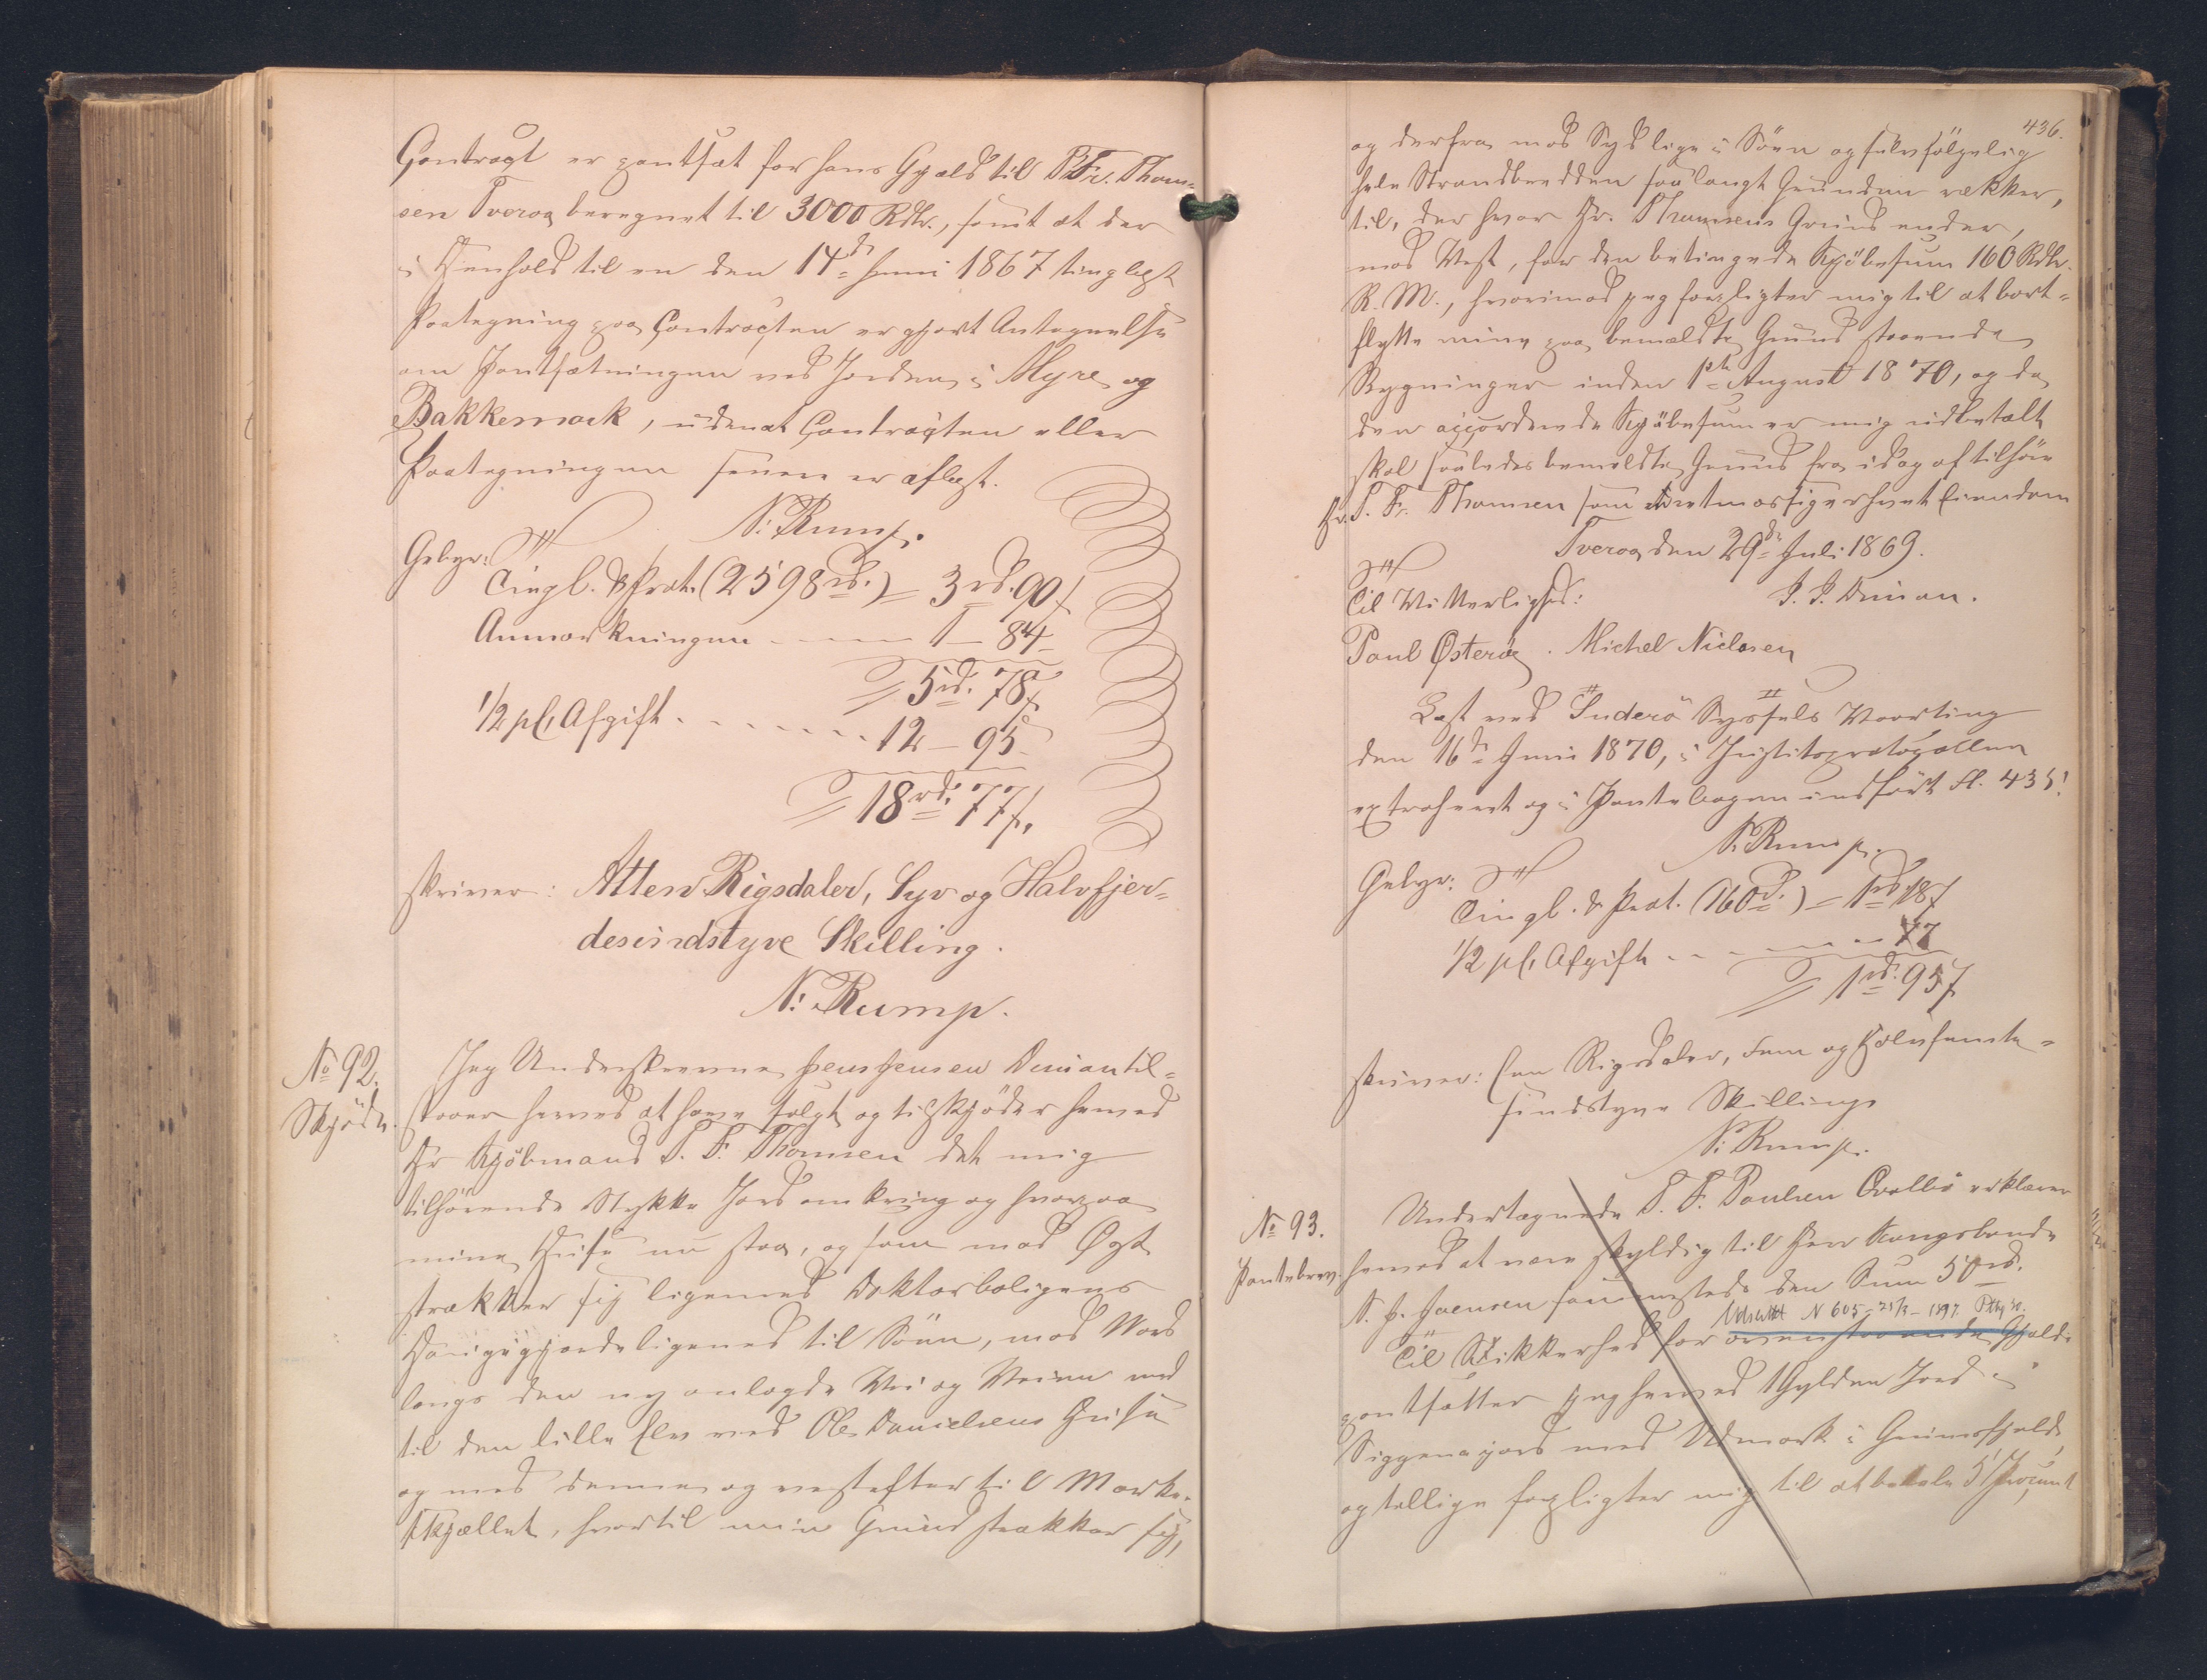 Contract er pantsat for hans Gjæld til P. Fr. Thom-
sen Tveraa beregnet til 3000 Rdlr., samt at der
i Henhold til en den 14de Juni 1867 tinglæst
Paategning paa Contracten er gjort Antegnelse
om Pantsætningen ved Jorden i Myre og
Bakkemark, uden at Contracten eller
Paategningen senere er aflyst.
N: Rump.
Gebyr:
Tingl. & Prot. (2598 rd.) = 3 rd. 90 ß
Anmærkningen - - - 1 - 84 -
= 5 rd. 78 ß
1/2 pCt Afgift - - - - - 12 - 95
= 18 rd. 77 ß.
skriver: Atten Rigsdaler, Syv og Halvfjer-
desindstyve Skilling.
N: Rump.
No 92.
Skjøde.
Jeg Underskrevne Jens Jensen Dimon til-
staaer herved at have solgt og tilskjøder hermed
Hr Kjöbmand T. F. Thomsen det mig
tilhörende Stykke Jord omkring og hvorpaa
mine Huse nu staa, og som mod Øst
strækker sig ligemed Doktorboligens
ligemed til Söen, mod Nord
langs den ny anlagde Vei og Veien ned
til den lille Elv ved Ole Danielsens Huse
og med denne og vestefter til Marke-
skjællet, hvortil min Grund strækker sig,
436.
og derfra mod Syd lige i Söen og fölgelig
hele Strandbredden saa langt Grunden rækker,
til, der hvor Hr. Thomsens Grund ender,
mod Vest, for den betingede Kjöbesum 160 Rdlr.
R. M., hvorimod jeg forpligter mig til at bort-
flytte mine paa bemældte Grund staaende
Bygninger inden 1ste August 1870, og da
den accorderede Kjöbesum er mig udbetalt
skal saaledes bemeldte Grund fra idag af tilhöre
Hr. T. Fr. Thomsen som retmæssig erhvervet Eiendom
Tveraa den 29de Juli 1869.
J. J. Dimon.
Til Vitterlighed:
Paul Østerø. Michel Nielsen
Læst ved Suderö Syssels Vaarting
den 16de Juni 1870, i Justitsprotocollen
extraheret og i Pantebogen indfört fl. 435.
N. Rump.
Gebyr:
Tingl. & Prot. (160 rd.) = 1 rd. 18 ß
1/2 pCt Afgift - - - - 77
= 1 rd. 95 ß
skriver: Een Rigsdaler, Fem og Halvfemte-
sindstyve Skilling
N: Rump.
No 93.
Pantebrev.
Undertegnede P. F. Poulsen Qvalbö erklærer
hermed at være skyldig til Herr Kongsbonde
S. P. Joensen sammesteds den Sum 50 rd.
Udslettet N 605 - 21/7 - 1897.
Til Sikkerhed for ovenstaaende Gjæld
pantsætter jeg hermed 1 Gylden Jord i
Siggenajord med Udmark i Grimsfjeld,
og tillige forpligter mig til at betale 5 Procent